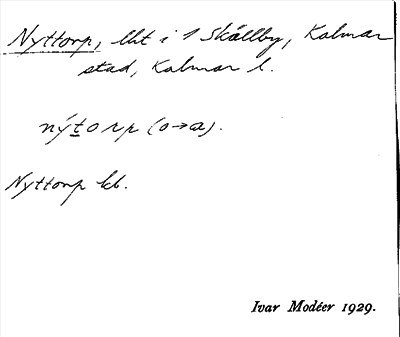 Nyttorp, lht i 1 Skälby, Kalmar
stad, Kalmar l.
nýtorp (o→a).
Nyttorp kb.
Ivar Modéer 1929.